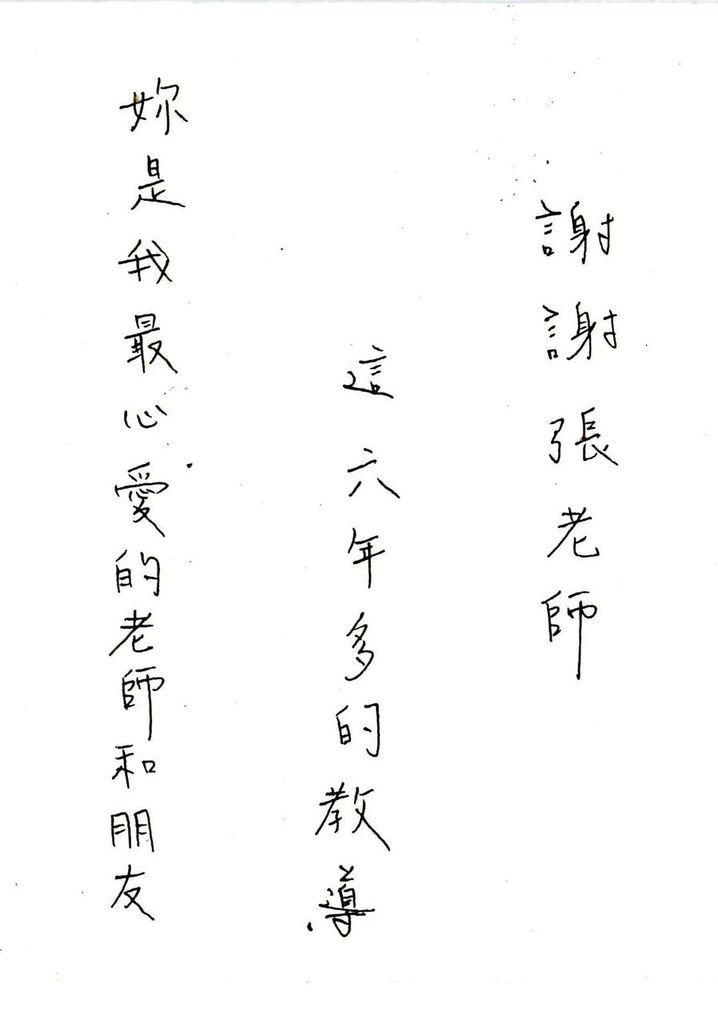 謝謝張老師
這六年多的教導
妳是我最心愛的老師和朋友